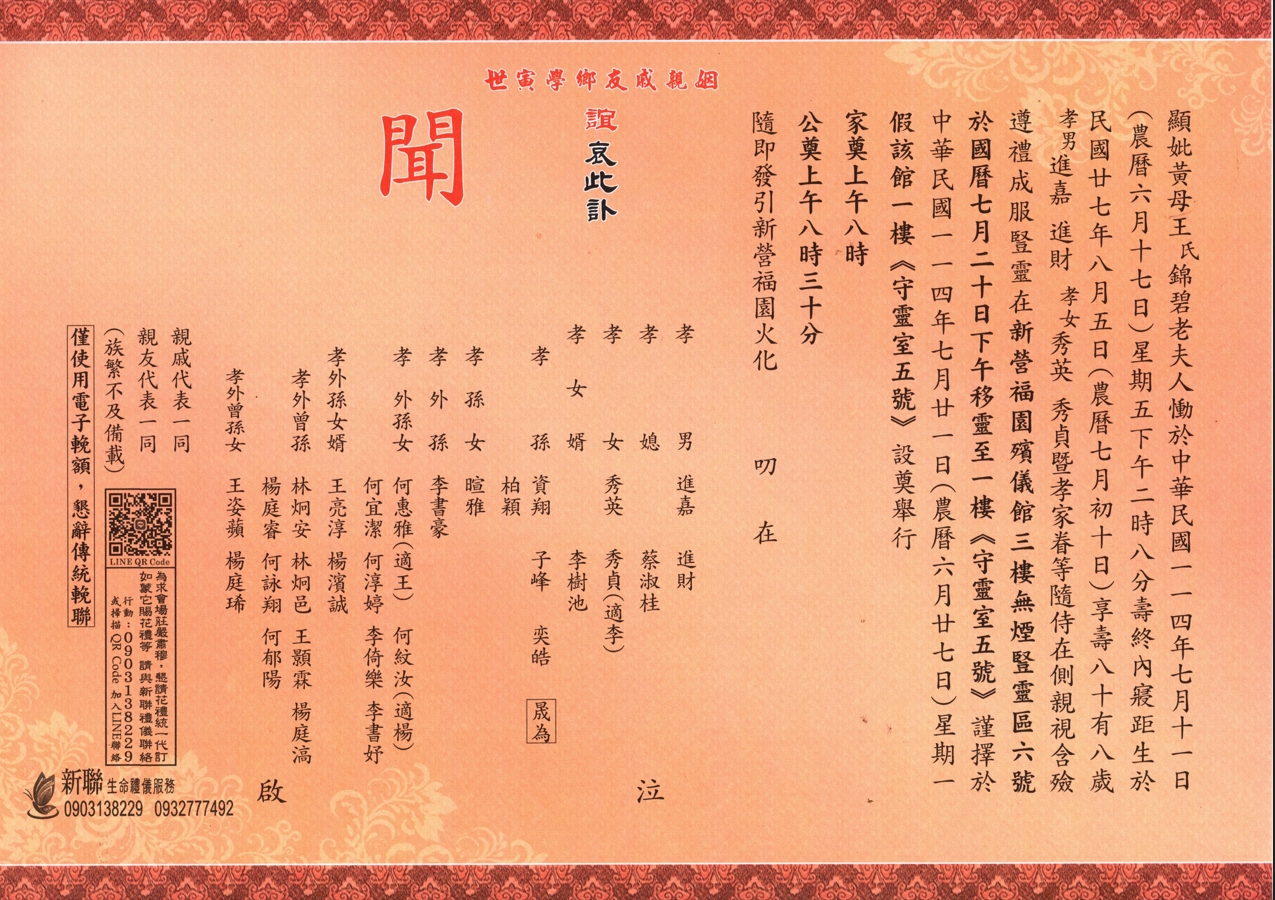 顯妣黃母王氏錦碧老夫人慟於中華民國一一四年七月十一日
(農曆六月十七日)星期五下午二時八分壽終內寢距生於
民國廿七年八月五日(農曆七月初十日)享壽八十有八歲
孝男進嘉 進財 孝女秀英 秀貞暨孝家眷等隨侍在側親視含殮
遵禮成服豎靈在新營福園殯儀館三樓無煙豎靈區六號
於國曆七月二十日下午移靈至一樓《守靈室五號》謹擇於
中華民國一一四年七月廿一日(農曆六月廿七日)星期一
假該館一樓《守靈室五號》設奠舉行
家奠上午八時
公奠上午八時三十分
隨即發引新營福園火化
叨在
姻親戚友鄉學寅世
誼哀此訃
聞
孝男 進嘉 進財
孝媳 蔡淑桂
孝女 秀英 秀貞(適李)
孝女婿 李樹池
孝孫 資翔 子峰 奕皓 晟為
柏穎
孝孫女 暄雅
孝外孫 李書豪
孝外孫女 何惠雅(適王) 何紋汝(適楊)
何宜潔 何淳婷 李倚樂 李書妤
孝外孫女婿 王亮淳 楊濱誠
孝外曾孫 林炯安 林炯邑 王顥霖 楊庭滈
楊庭睿 何詠翔 何郁陽
孝外曾孫女 王姿蘋 楊庭瑀
泣
啟
親戚代表一同
親友代表一同
(族繁不及備載)
僅使用電子輓額，懇辭傳統輓聯
LINE QR Code
為求會場莊嚴肅穆，懇請花禮統一代訂
如蒙它賜花禮等 請與新聯禮儀聯絡
行動：0903138229
或掃描 QR Code 加入LINE聯絡
新聯 生命禮儀服務
0903138229 0932777492